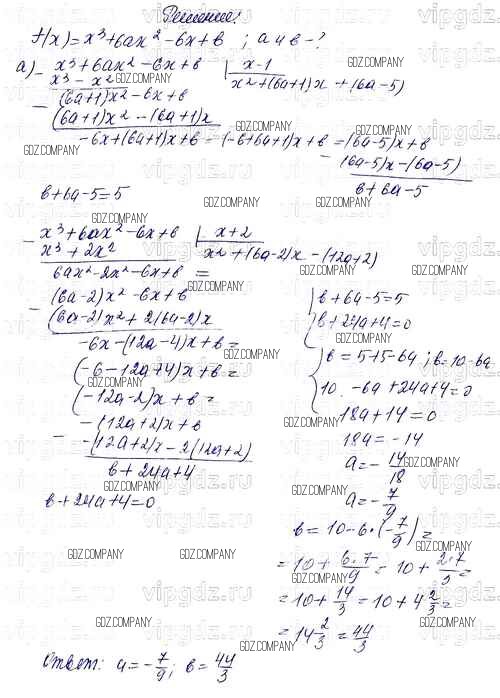 Решение:
f(x)=x³+6ax²-6x+в ; а и в - ?
а) - x³+6ax²-6x+в | x-1
x³-x² | x²+(6a+1)x+(6a-5)
(6a+1)x²-6x+в
- (6a+1)x²-(6a+1)x
-6x+(6a+1)x+в=(-6+6a+1)x+в=(6a-5)x+в
- (6a-5)x-(6a-5)
в+6a-5
в+6a-5=5
- x³+6ax²-6x+в | x+2
x³+2x² | x²+(6a-2)x-(12a+2)
6ax²-2x²-6x+в=
(6a-2)x²-6x+в
- (6a-2)x²+2(6a-2)x
-6x-(12a-4)x+в=
(-6-12a+4)x+в=
(-12a-2)x+в=
-(12a+2)x+в
- -(12a+2)x-2(12a+2)
в+24a+4
в+24a+4=0
{ в+6a-5=5
в+24a+4=0
{ в=5+5-6a; в=10-6a
10-6a+24a+4=0
18a+14=0
18a=-14
a=-14/18
a=-7/9
в=10-6·(-7/9)=
=10+6·7/9=10+2·7/3=
=10+14/3=10+4 2/3=
=14 2/3=44/3
Ответ: a=-7/9; в=44/3
GDZ.COMPANY
vipgdz.ru